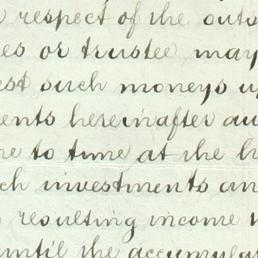 respect of the outs
es or trustee may
est such moneys u
ents hereinafter au
me to time at the h
ch investments an
resulting income
until the accumula